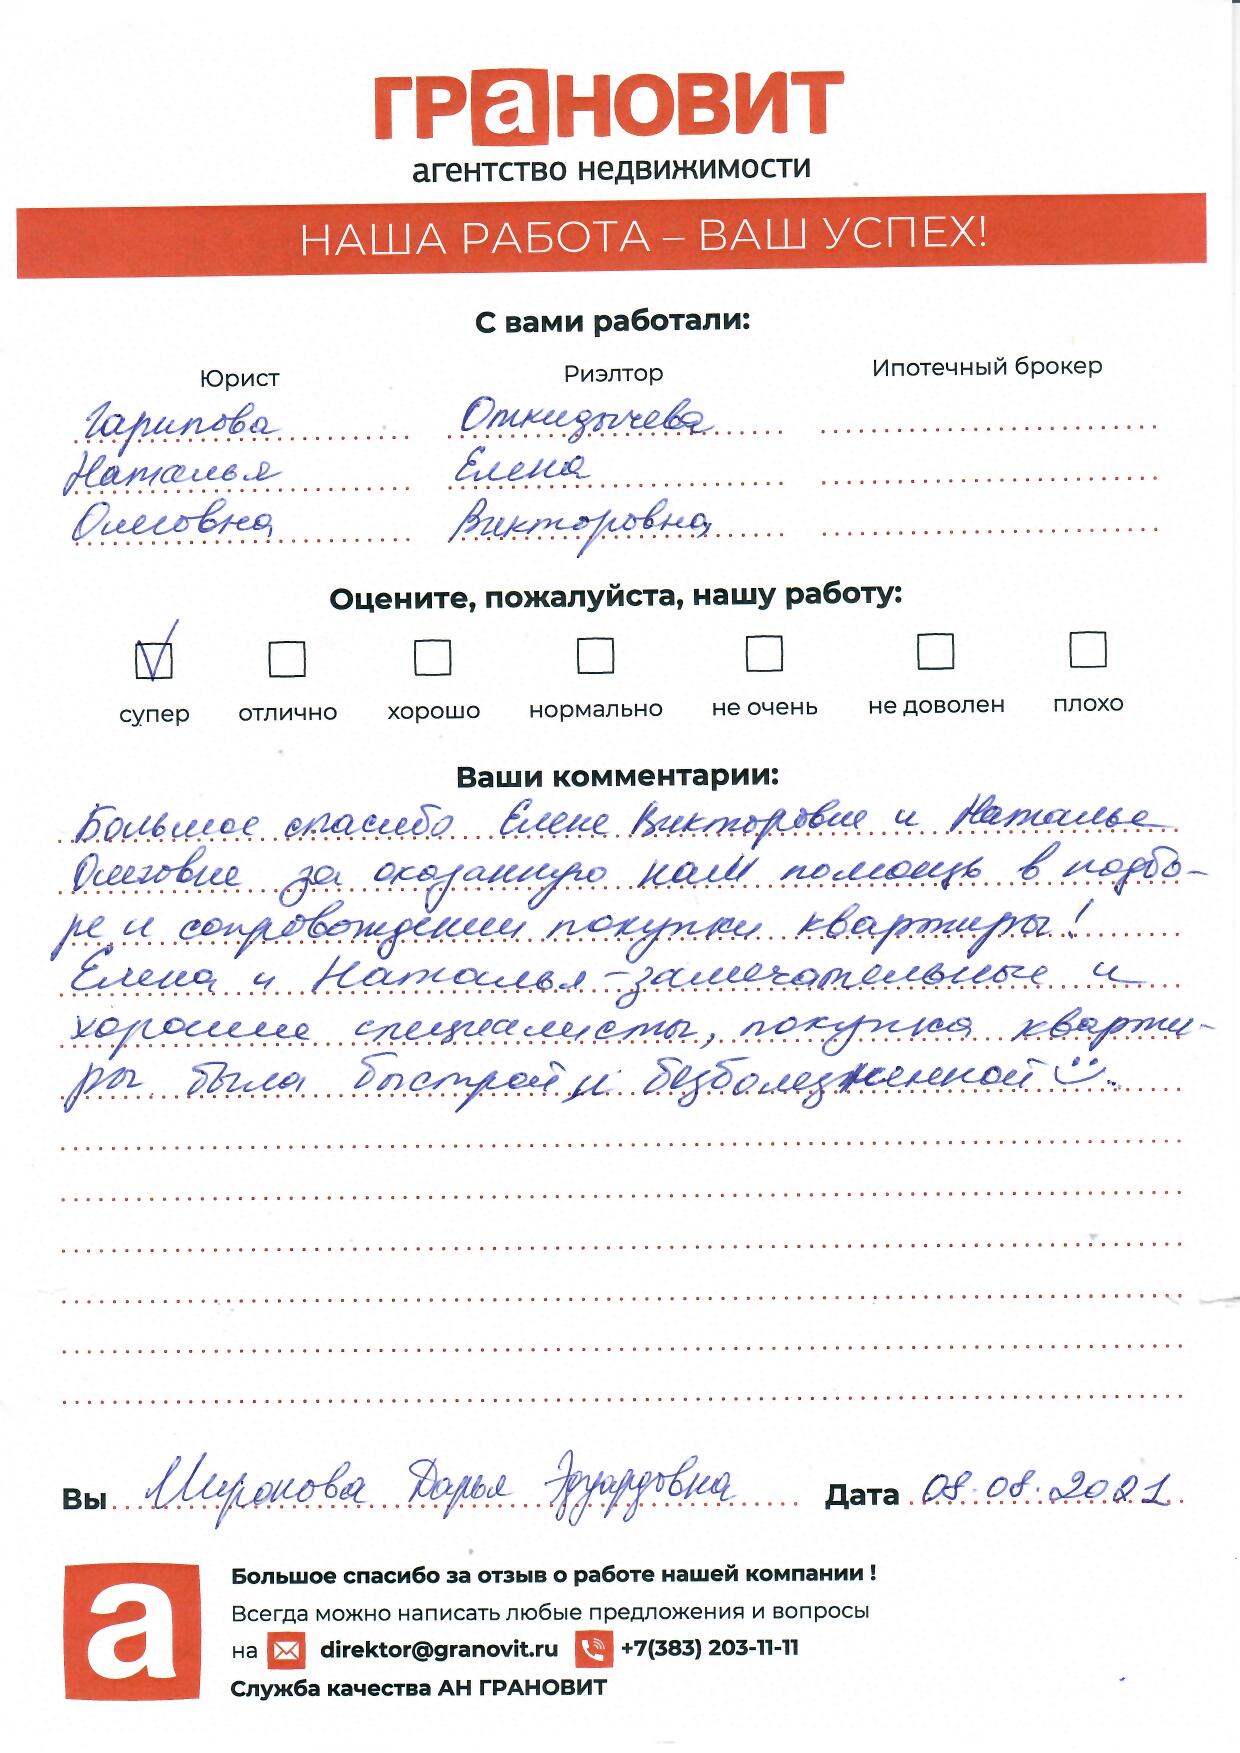 ГРаНОВИТ
агентство недвижимости
НАША РАБОТА – ВАШ УСПЕХ!
С вами работали:
Юрист Риэлтор Ипотечный брокер
Гарипова Откидычева
Наталья Елена
Олеговна Викторовна
Оцените, пожалуйста, нашу работу:
супер отлично хорошо нормально не очень не доволен плохо
Ваши комментарии:
Большое спасибо Елене Викторовне и Наталье
Олеговне за оказанную нам помощь в подбо-
ре и сопровождении покупки квартиры!
Елена и Наталья - замечательные и
хорошие специалисты, покупка кварти-
ры была быстрой и безболезненной
Вы Миронова Дарья Эдуардовна Дата 08.08.2021
а
Большое спасибо за отзыв о работе нашей компании !
Всегда можно написать любые предложения и вопросы
на direktor@granovit.ru +7(383) 203-11-11
Служба качества АН ГРАНОВИТ